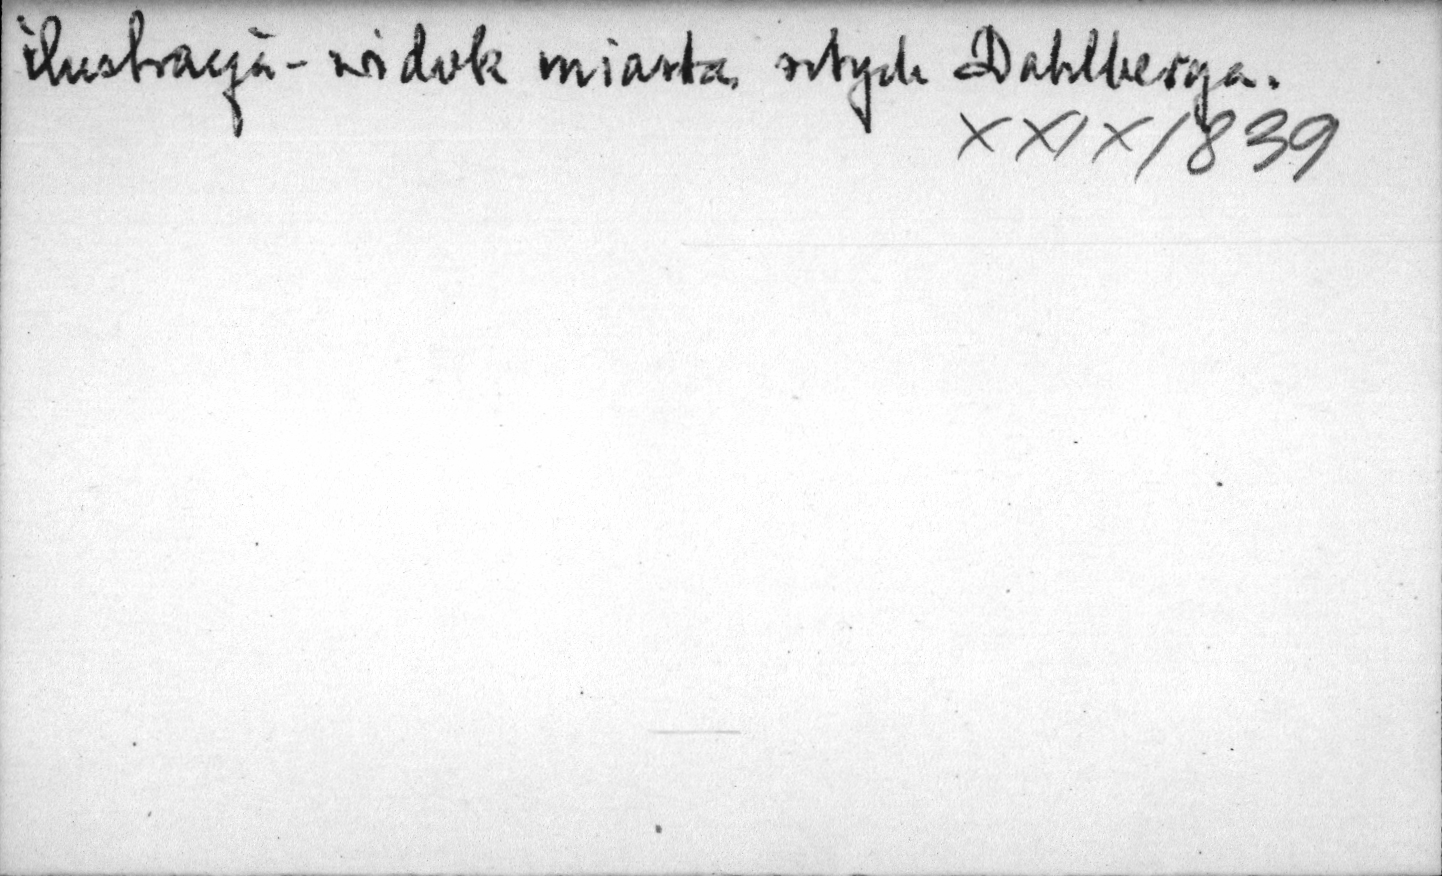 ilustracja - widok miasta, sztych Dahlberga.
XXIX/839